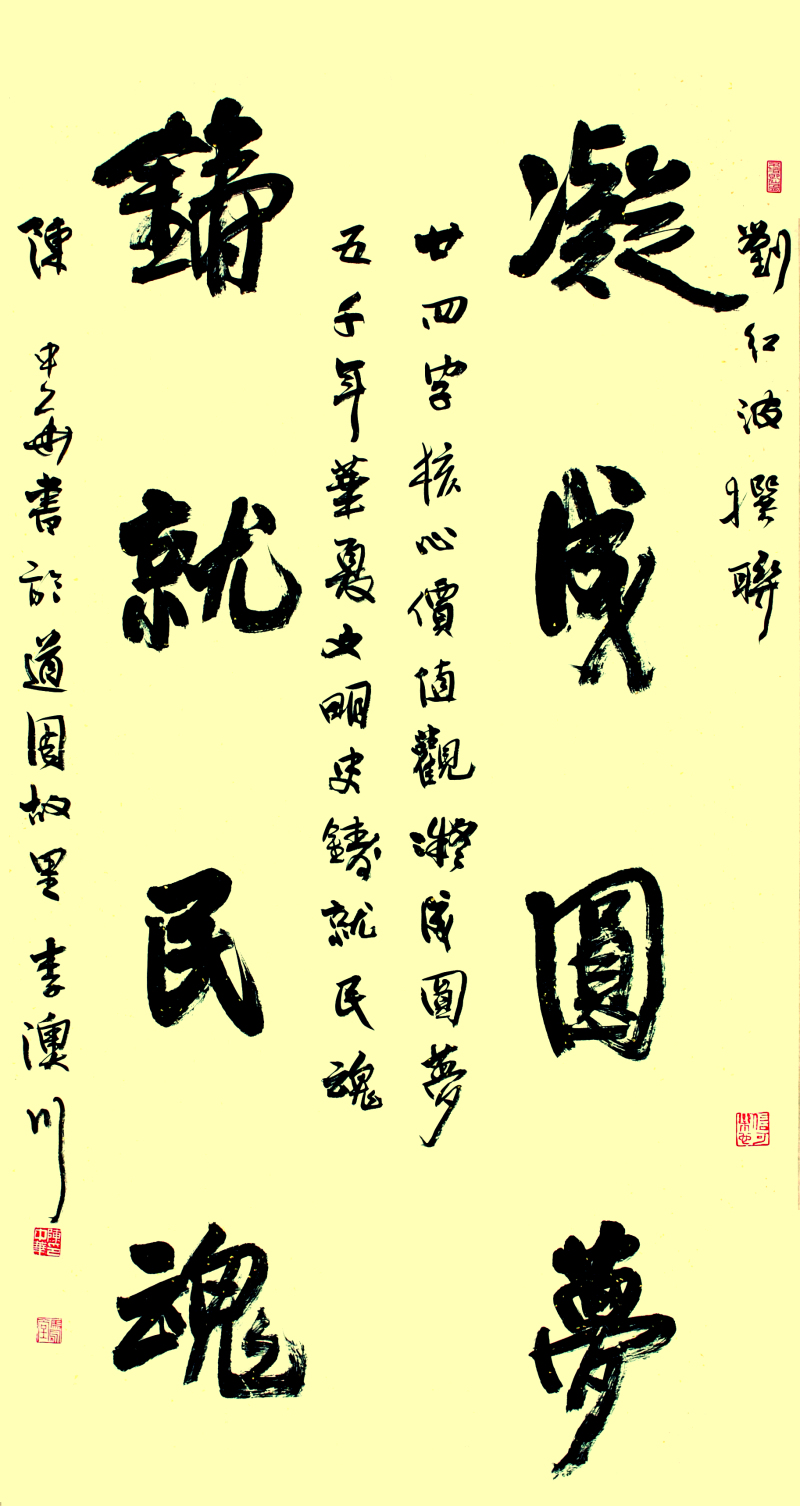 劉紅波撰聯
凝成圓夢
廿四字核心價值觀凝成圓夢
五千年華夏文明史鑄就民魂
鑄就民魂
陳中華書於道周故里李澳川
信可樂也